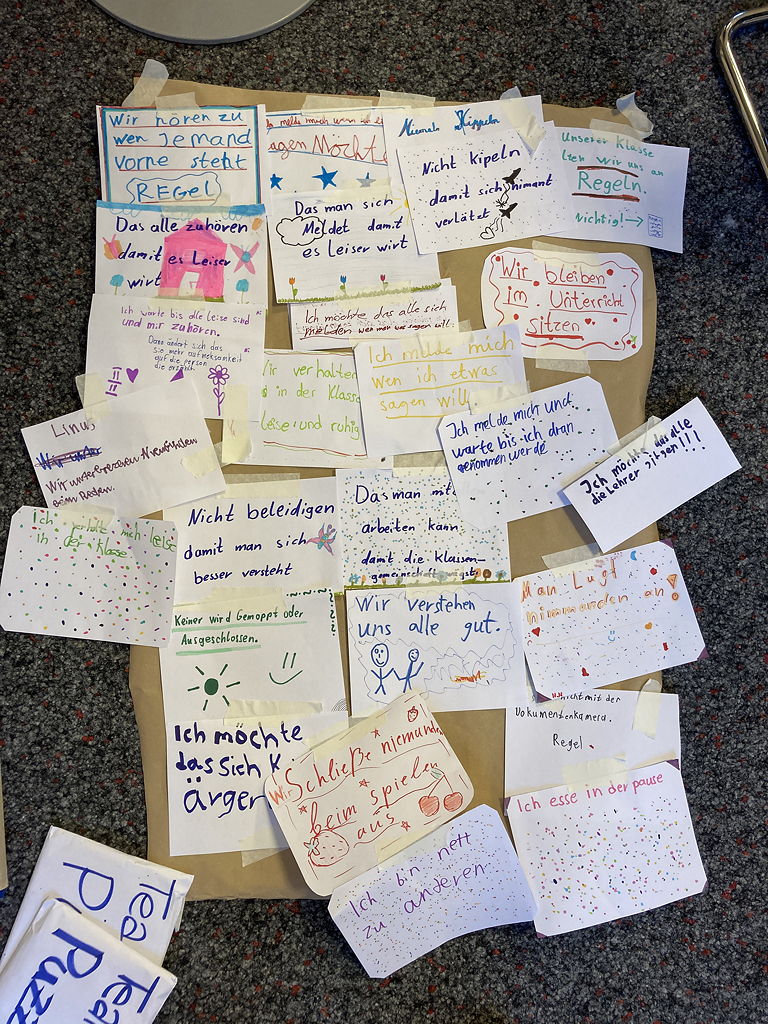 Wir hören zu
wen Jemand
vorne steht
REGEL
melde mich wenn ich
agen Möchte
Niemals Kippeln
Nicht kipeln
damit sich nimant
verlätzt
Unserer Klasse
ten wir uns an
Regeln.
wichtig!→
Das alle zuhören
damit es Leiser
wirt
Das man sich
Meldet damit
es Leiser wirt
Wir bleiben
im Unterricht
sitzen
Ich warte bis alle leise sind
und mir zuhören.
Dann ändert sich das
sie mehr aufmeksamkeit
auf die person
die erzählt.
Ich möchte das alle sich
melden wen man was sagen will.
Wir verhalten
in der Klasse
leise und ruhig
Ich melde mich
wen ich etwas
sagen will
Ich melde mich und
warte bis ich dran
genommen werde
Ich möchte das alle
die Lehrer sitzen!!!
Linus
Wir unterbrechen Niemanden
beim Reden.
Ich verhalte mich leise
in der Klasse
Nicht beleidigen
damit man sich
besser versteht
Das man mit
arbeiten kann
damit die Klassen-
gemeinschaft
Keiner wird Gemoppt oder
Ausgeschlossen.
Wir verstehen
uns alle gut.
Man Lugt
nimmanden an!
nicht mit der
Dokumentenkamera.
Regel.
Ich möchte
das sich k
ärger
Wir Schließe niemanden
beim spielen
aus
Ich esse in der pause
Ich bin nett
zu anderen
Tea
Pu
Tea
Puzz